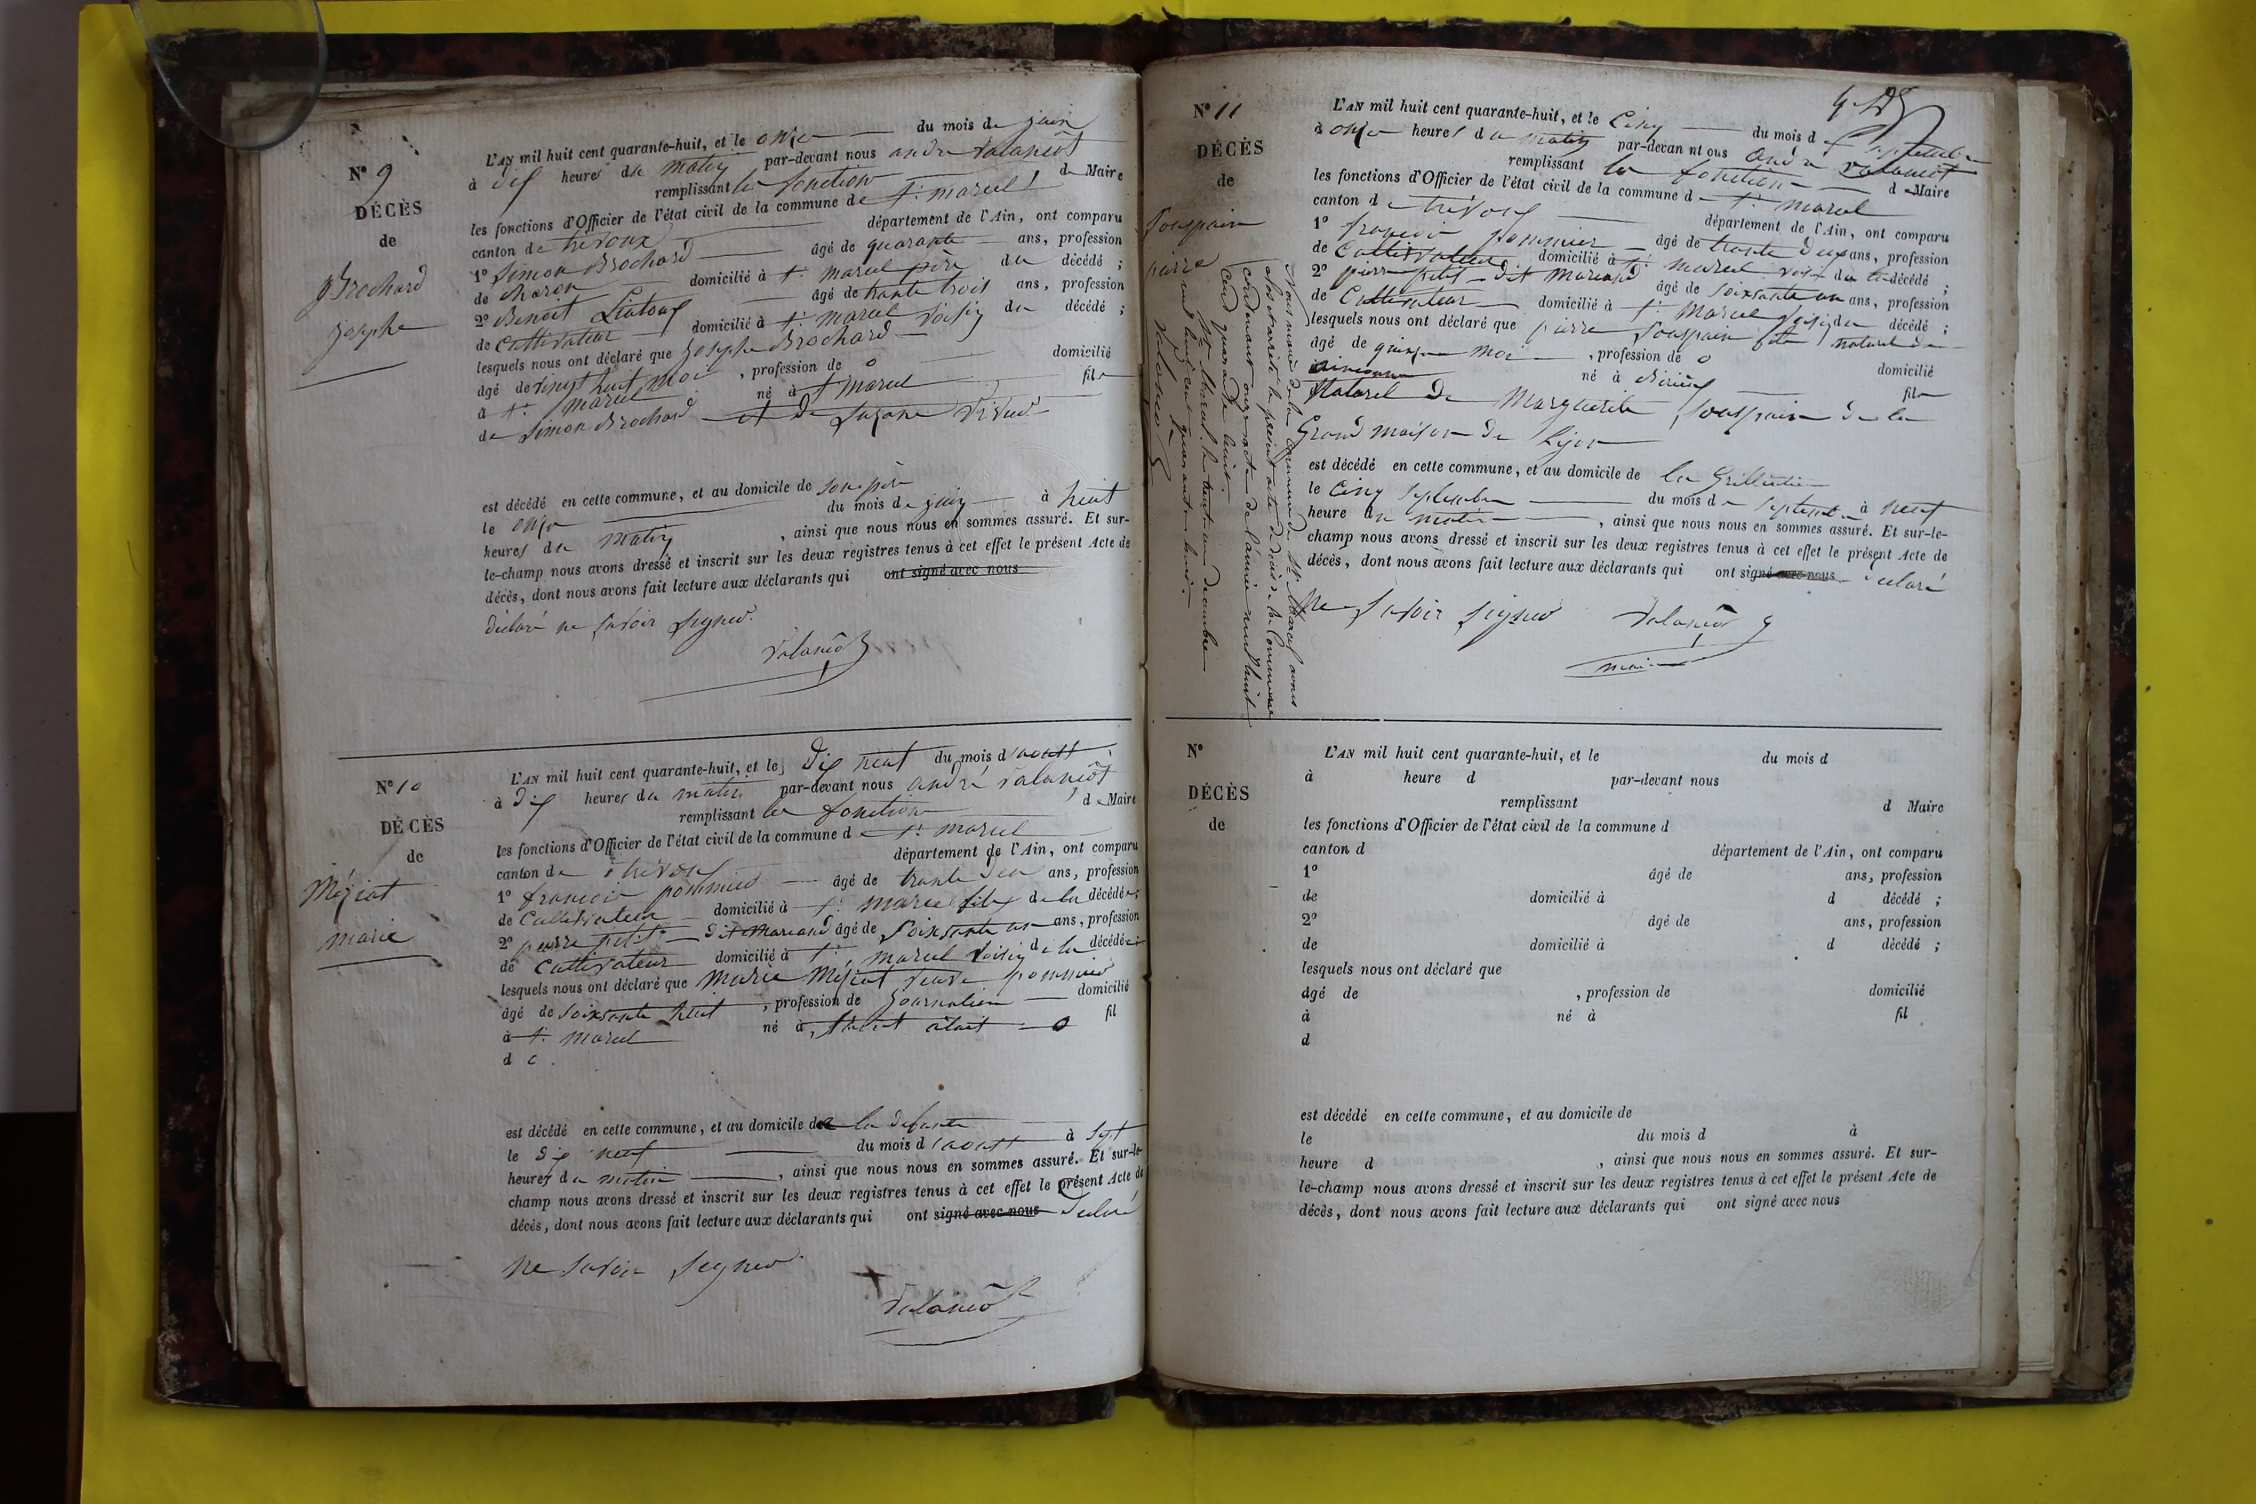 N° 9
DÉCÈS
de
Brochard
joseph
L'AN mil huit cent quarante-huit, et le onze du mois de juin
à dix heures du matin par-devant nous andré Valanciôt
remplissant les fonction de Maire
les fonctions d'Officier de l'état civil de la commune de st marcel
canton de trévoux département de l'Ain, ont comparu
1° Simon Brochard âgé de quarante ans, profession
de charon domicilié à st marcel père du décédé ;
2° Benoit âgé de trante trois ans, profession
de cultivateur domicilié à st marcel voisin du décédé ;
lesquels nous ont déclaré que joseph Brochard
âgé de vingt huit moi , profession de o domicilié
à st marcel né à st marcel fils
de Simon Brochard et de Suzane
est décédé en cette commune, et au domicile de son père
le onze du mois de juin à huit
heures du matin , ainsi que nous nous en sommes assuré. Et sur-
le-champ nous avons dressé et inscrit sur les deux registres tenus à cet effet le présent Acte de
décès, dont nous avons fait lecture aux déclarants qui ont signé avec nous
déclaré ne savoir signer
Valanciôt
N° 10
DÉCÈS
de
Méziat
marie
L'AN mil huit cent quarante-huit, et le dix neuf du mois d'aoust
à dix heures du matin par-devant nous andré Valanciôt
remplissant les fonction de Maire
les fonctions d'Officier de l'état civil de la commune de st marcel
canton de trévoux département de l'Ain, ont comparu
1° françois pommier âgé de trante deu ans, profession
de Cultivateur domicilié à st marcel fils de la décédée ;
2° pierre petit dit Marcand âgé de soixsante un ans, profession
de cultivateur domicilié à st marcel voisin de la décédée ;
lesquels nous ont déclaré que marie Méziat veuve pommier
âgé de soixsante huit , profession de journalière domicilié
à st marcel né à o fil
d o
est décédé en cette commune, et au domicile de la défunte
le dix neuf du mois d'aoust à sept
heures du matin , ainsi que nous nous en sommes assuré. Et sur-le-
champ nous avons dressé et inscrit sur les deux registres tenus à cet effet le présent Acte de
décès, dont nous avons fait lecture aux déclarants qui ont signé avec nous déclaré
ne savoir signer
Valanciôt
N° 11
DÉCÈS
de
Souspain
pierre
Nous maire de la commune de St Marcel avons
clos et arrêté le présent acte de décès de la commune
contenant onze actes de l'année mil huit
cent quarante huit.
St Marcel le trente un décembre
mil huit cent quarante huit.
Valanciôt
L'AN mil huit cent quarante-huit, et le cinq du mois de septembre
à onze heures du matin par-devan nt ous andré Valanciôt
remplissant les fonction de Maire
les fonctions d'Officier de l'état civil de la commune de st marcel
canton de trévoux département de l'Ain, ont comparu
1° françois pommier âgé de trante deux ans, profession
de Cultivateur domicilié à st marcel voisin du décédé ;
2° pierre petit dit Marcand âgé de soixsante un ans, profession
de Cultivateur domicilié à st Marcel voisin du décédé ;
lesquels nous ont déclaré que pierre Souspain fils naturel de
âgé de quinze moi , profession de o domicilié
né à fils
Naturel de Marguerite Souspain de la
Grand maison de Lijon
est décédé en cette commune, et au domicile de la
le cinq septembre du mois de septembre à neuf
heure du matin , ainsi que nous nous en sommes assuré. Et sur-le-
champ nous avons dressé et inscrit sur les deux registres tenus à cet effet le présent Acte de
décès, dont nous avons fait lecture aux déclarants qui ont signé avec nous déclaré
Ne savoir signer Valanciôt
maire
N°
DÉCÈS
de
L'AN mil huit cent quarante-huit, et le du mois d
à heure d par-devant nous
remplissant d Maire
les fonctions d'Officier de l'état civil de la commune d
canton d département de l'Ain, ont comparu
1° âgé de ans, profession
de domicilié à d décédé ;
2° âgé de ans, profession
de domicilié à d décédé ;
lesquels nous ont déclaré que
âgé de , profession de domicilié
à né à fil
d
est décédé en cette commune, et au domicile de
le du mois d à
heure d , ainsi que nous nous en sommes assuré. Et sur-
le-champ nous avons dressé et inscrit sur les deux registres tenus à cet effet le présent Acte de
décès, dont nous avons fait lecture aux déclarants qui ont signé avec nous